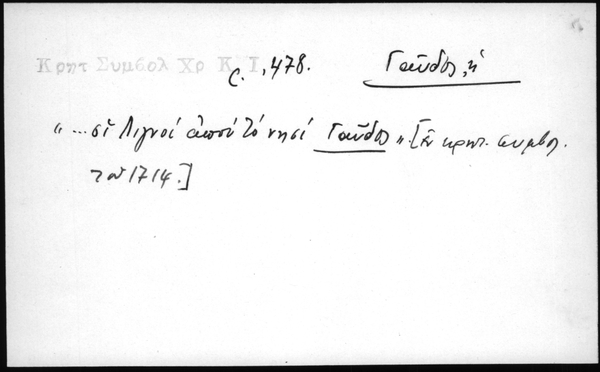 Κρητ Συμβολ Χρ Κ Ι, σ. 478. Γαῦδος, ἡ
"... οἱ Λιγνοί ἀπού τό νησί Γαῦδος". [Ἐν κρητ. συμβολ.
τοῦ 1714.]